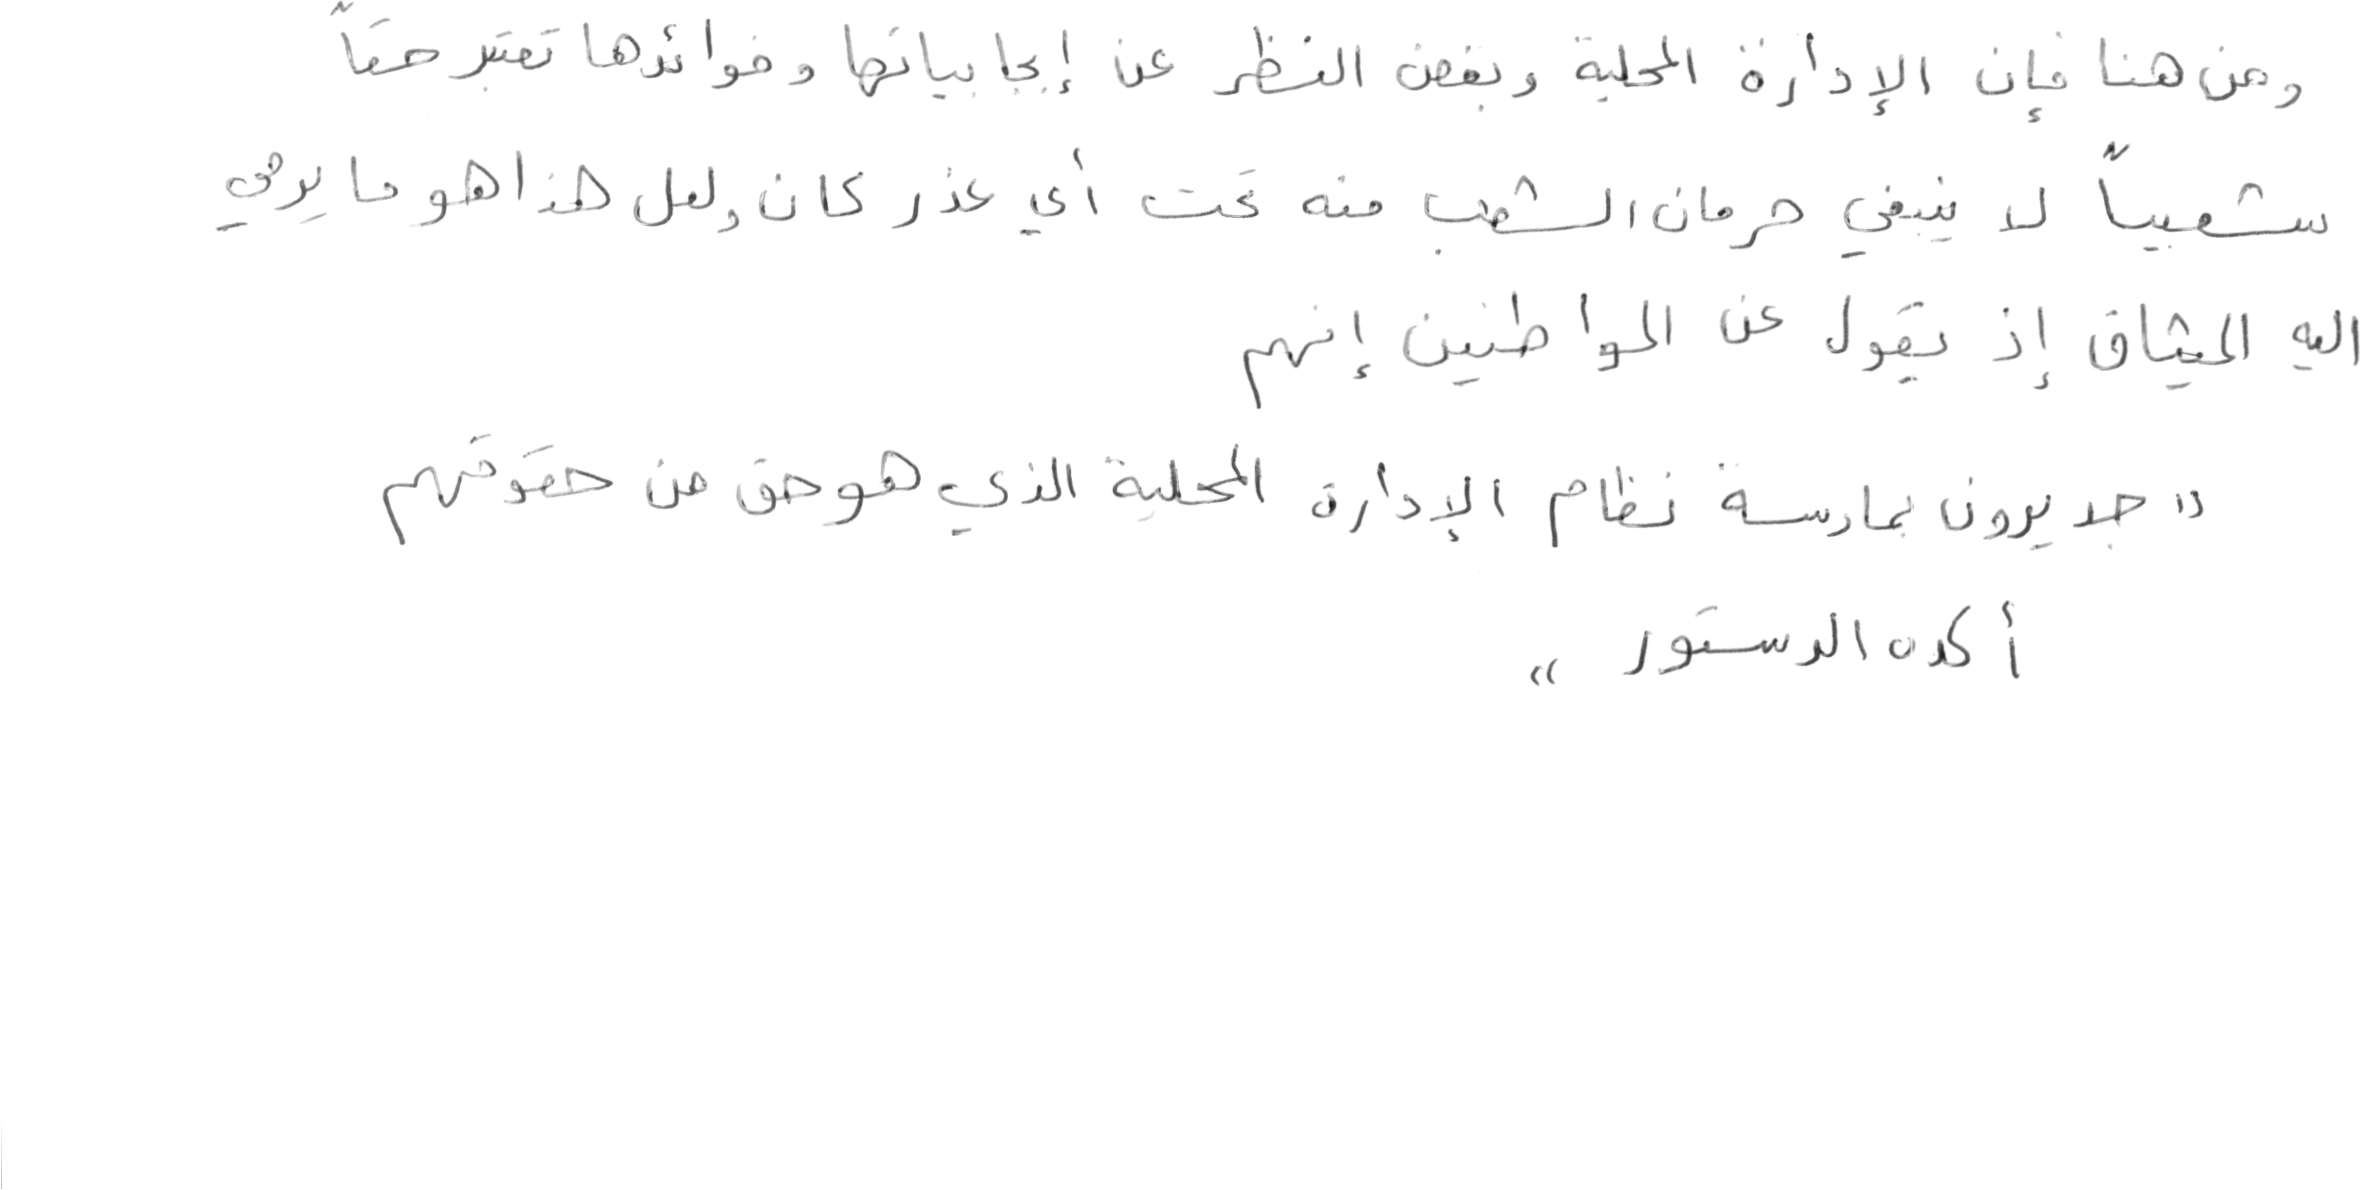 ومن هنا فإن الإدارة المحلية وبغض النظر عن إيجابياتها وفوائدها تعتبر حقاً
شعبياً لا ينبغي حرمان الشعب منه تحت أي عذر كان ولعل هذا هو ما يرمي
اليه الميثاق إذ يقول عن المواطنين إنهم
" جديرون بمارسة نظام الإدارة المحلية الذي هو حق من حقوقهم
أكده الدستور "